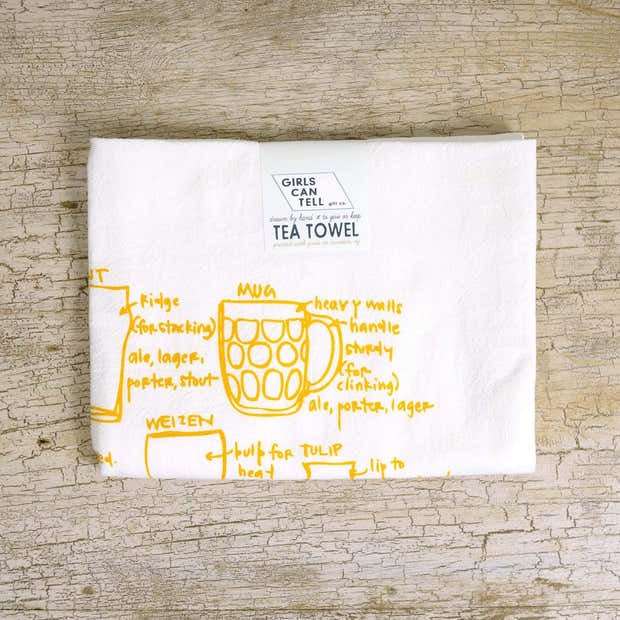 GIRLS
CAN
TELL
gift co.
drawn by hand & to give or keep
TEA TOWEL
MUG
Ridge
(for stacking)
ale, lager,
porter, stout
heavy walls
handle
sturdy
(for
clinking)
ale, porter, lager
WEIZEN
bulb for
heat
TULIP
lip to